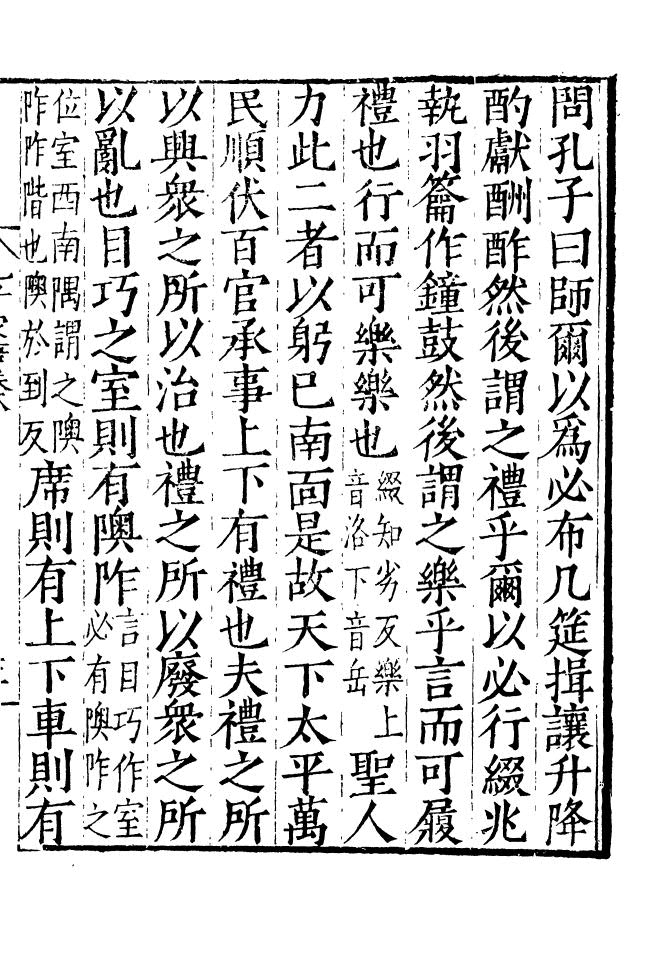 問孔子曰師爾以爲必布几筵揖讓升降
酌獻酬酢然後謂之禮乎爾以必行綴兆
執羽籥作鐘鼓然後謂之樂乎言而可履
禮也行而可樂樂也綴知劣反樂上音洛下音岳聖人
力此二者以躬己南面是故天下太平萬
民順伏百官承事上下有禮也夫禮之所
以興衆之所以治也禮之所以廢衆之所
以亂也目巧之室則有隩阼言目巧作室必有隩阼之
位室西南隅謂之隩阼阼階也隩於到反席則有上下車則有